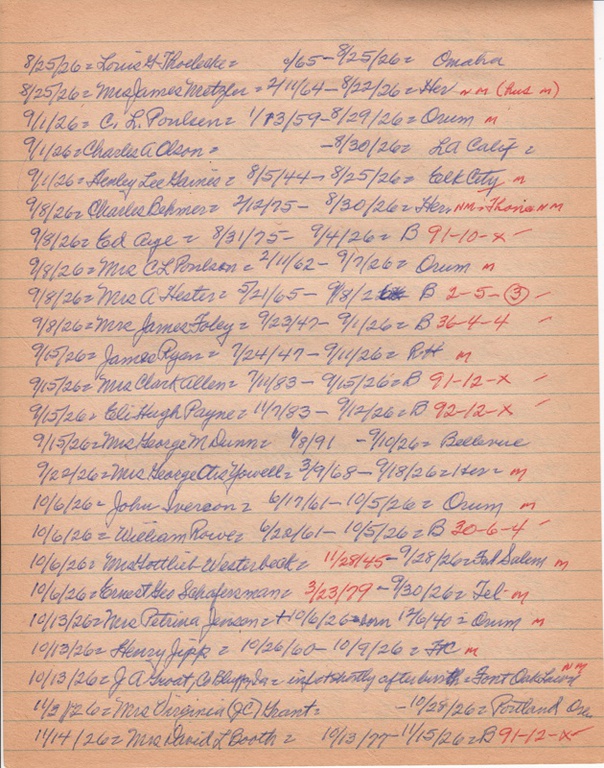 8/25/26 = Louis G Thoelecke = /65 - 8/25/26 = Omaha
8/25/26 = Mrs James Metzler = 2/11/64 - 8/22/26 = Her NM (Hus M)
9/1/26 = C. L. Poulsen = 1/13/59 - 8/29/26 = Orum M
9/1/26 = Charles A Olson = - 8/30/26 = LA Calif =
9/1/26 = Henley Lee Gaines = 8/5/44 - 8/25/26 = Elk City M
9/8/26 = Charles Behmer = 2/12/75 - 8/30/26 = Her NM = NM
9/8/26 = Ed Aye = 8/31/75 - 9/4/26 = B 91-10-X -
9/8/26 = Mrs C L Poulson = 2/11/62 - 9/7/26 = Orum M
9/8/26 = Mrs A Hester = 5/21/65 - 9/8/2 B 2-5-3 -
9/8/26 = Mrs James Foley = 9/23/47 - 9/1/26 = B 36-4-4 -
9/15/26 = James Ryan = 7/24/47 - 9/11/26 = RH M
9/15/26 = Mrs Clark Allen = 7/11/83 - 9/15/26 = B 91-12-X -
9/15/26 = Eli Hugh Payne = 11/7/83 - 9/12/26 = B 92-12-X -
9/15/26 = Mrs George M Dunn = /8/91 - 9/10/26 = Bellevue
9/22/26 = Mrs George Otis Yowell = 3/9/68 - 9/18/26 = Her = M
10/6/26 = John Iverson = 6/17/61 - 10/5/26 = Orum M
10/6/26 = William Rowe = 6/20/61 - 10/5/26 = B 30-6-4 -
10/6/26 = Mrs Gottlieb Westerbeck = 11/28/45 - 9/28/26 = Ft Salem M
10/6/26 = Ernest Geo Schafersman = 3/23/79 - 9/30/26 = Tel - M
10/13/26 = Mrs Petrina Jenson = + 10/6/26 = born 12/6/40 = Orum M
10/13/26 = Henry Jipp = 10/26/60 - 10/9/26 = FC M
10/13/26 = J A Groat, Co Blfps Ia = inf shortly after birth = Font Oak Lawn NM
11/3/26 = Mrs Virginia (JC) Grant = - 10/28/26 = Portland Ore
11/14/26 = Mrs David L Booth = 10/13/77 - 11/15/26 = B 91-12-X -